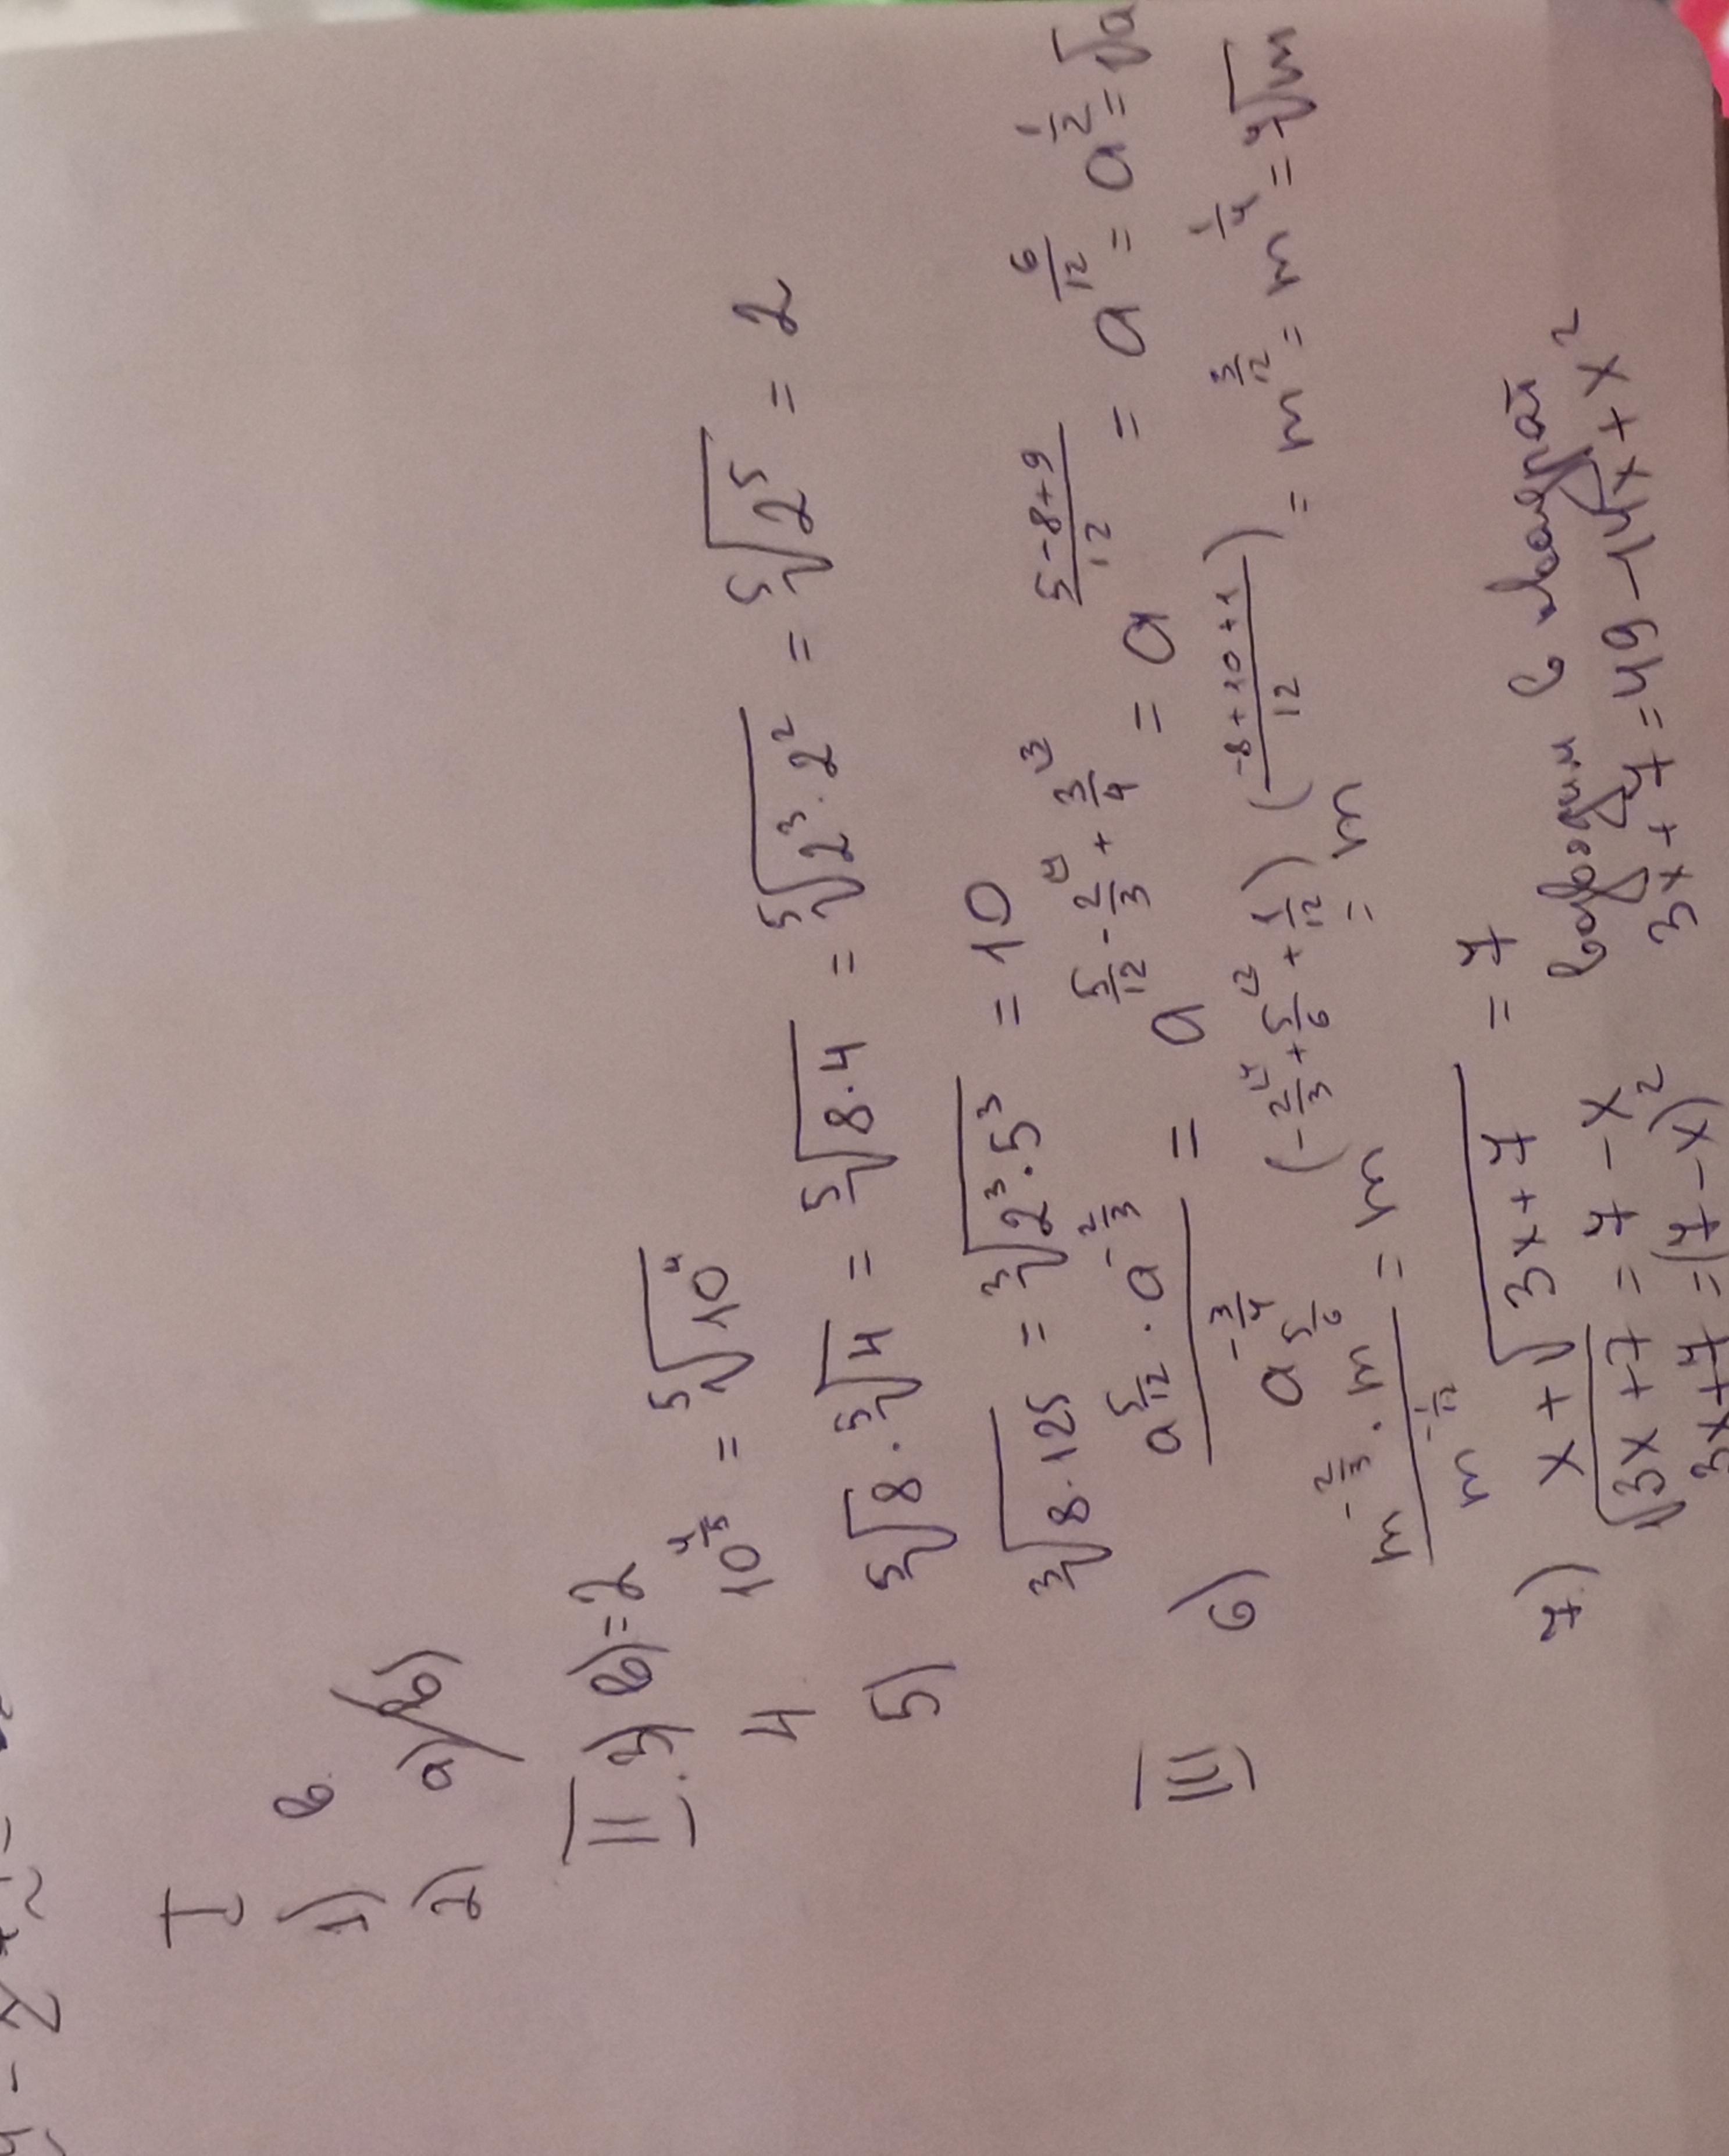 I
1) в.
2) а) б)
II. 3) в) = 2
4 10^{4/5} = ⁵√10⁴
5) ⁵√8 · ⁵√4 = ⁵√8·4 = ⁵√2³·2² = ⁵√2⁵ = 2
³√8·125 = ³√2³·5³ = 10
III 6) (a^{5/12} · a^{-2/3}) / a^{-3/4} = a^{5/12 - 2/3^{(4} + 3/4^{(3}} = a^{(5-8+9)/12} = a^{6/12} = a^{1/2} = √a
(m^{-2/3} · m^{5/6}) / m^{-1/12} = m^{(-2/3^{(4} + 5/6^{(2} + 1/12)} = m^{((-8+10+1)/12)} = m^{3/12} = m^{1/4} = ⁴√m
7) x + √3x+7 = 7
√3x+7 = 7 - x возводим в квадрат
3x+7 = (7-x)² 3x+7 = 49 - 14x + x²